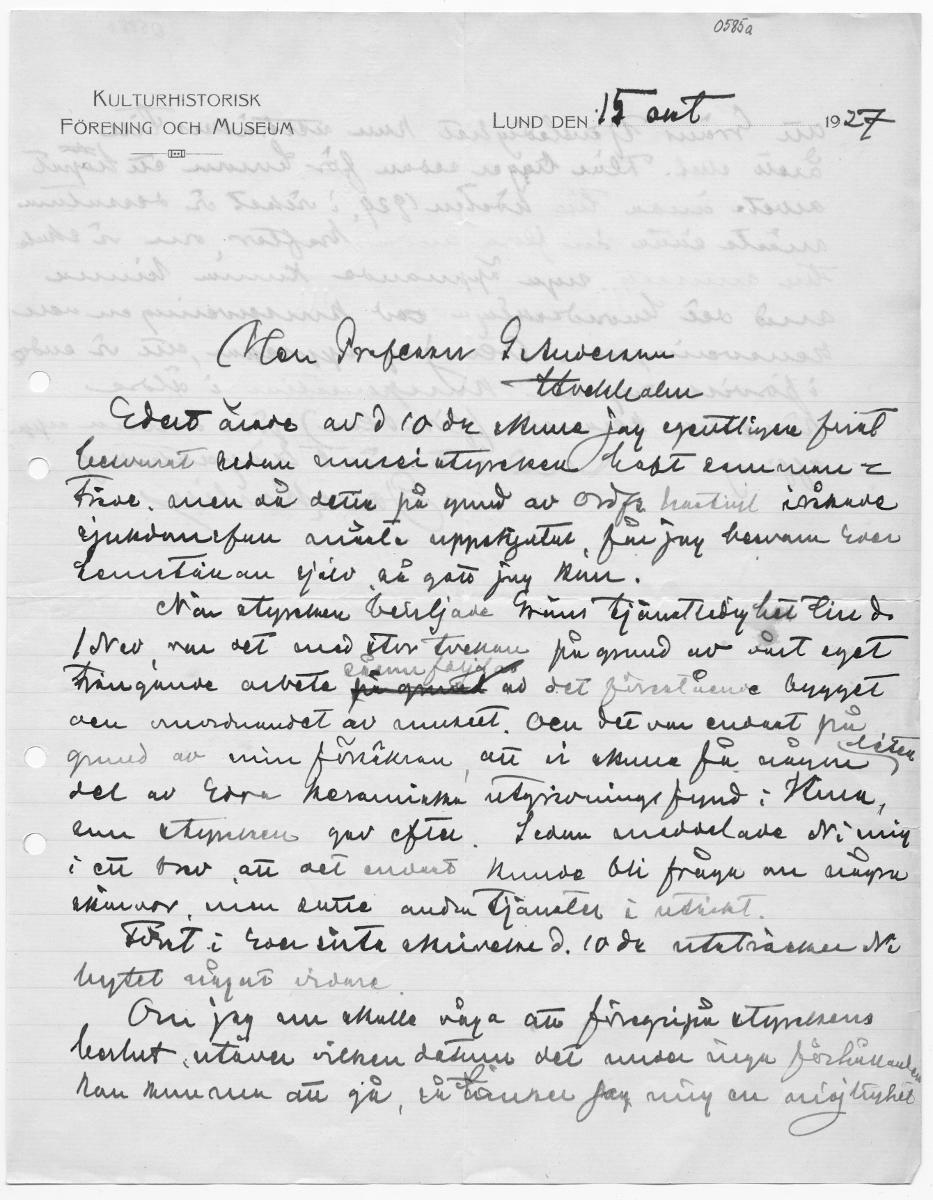 0585a
KULTURHISTORISK
FÖRENING OCH MUSEUM
LUND DEN 15 okt 1927
Herr Professor J G Andersson
Stockholm
Edert ärade av d 10 ds skulle jag egentligen först
besvarat sedan museistyrelsen haft samman=
träde, men då detta på grund av Ordf. hastigt iråkade
sjukdomsfall måste uppskjutas, får jag besvara Eder
hemställan själv så gott jag kan.
När styrelsen beviljade Gräns tjänstledighet till d.
1 Nov, var det med stor tvekan på grund av vårt eget
trängande arbete såsom följd av det förestående bygget
och omordnandet av museet. Och det var endast på
grund av min försäkran, att vi skulle få någon liten
del av Edra keramiska utgrävningsfynd i Kina,
som styrelsen gav efter. Sedan meddelade Ni mig
i ett brev, att det endast kunde bli fråga om några
skärvor, men satte andra tjänster i utsikt.
Först i Eder sista skrivelse d. 10 ds utsträcker Ni
bytet något vidare.
Om jag nu skulle våga att föregripa styrelsens
beslut, utöver vilken datum det under inga förhållanden
kan komma att gå, så tänker jag mig en möjlighet